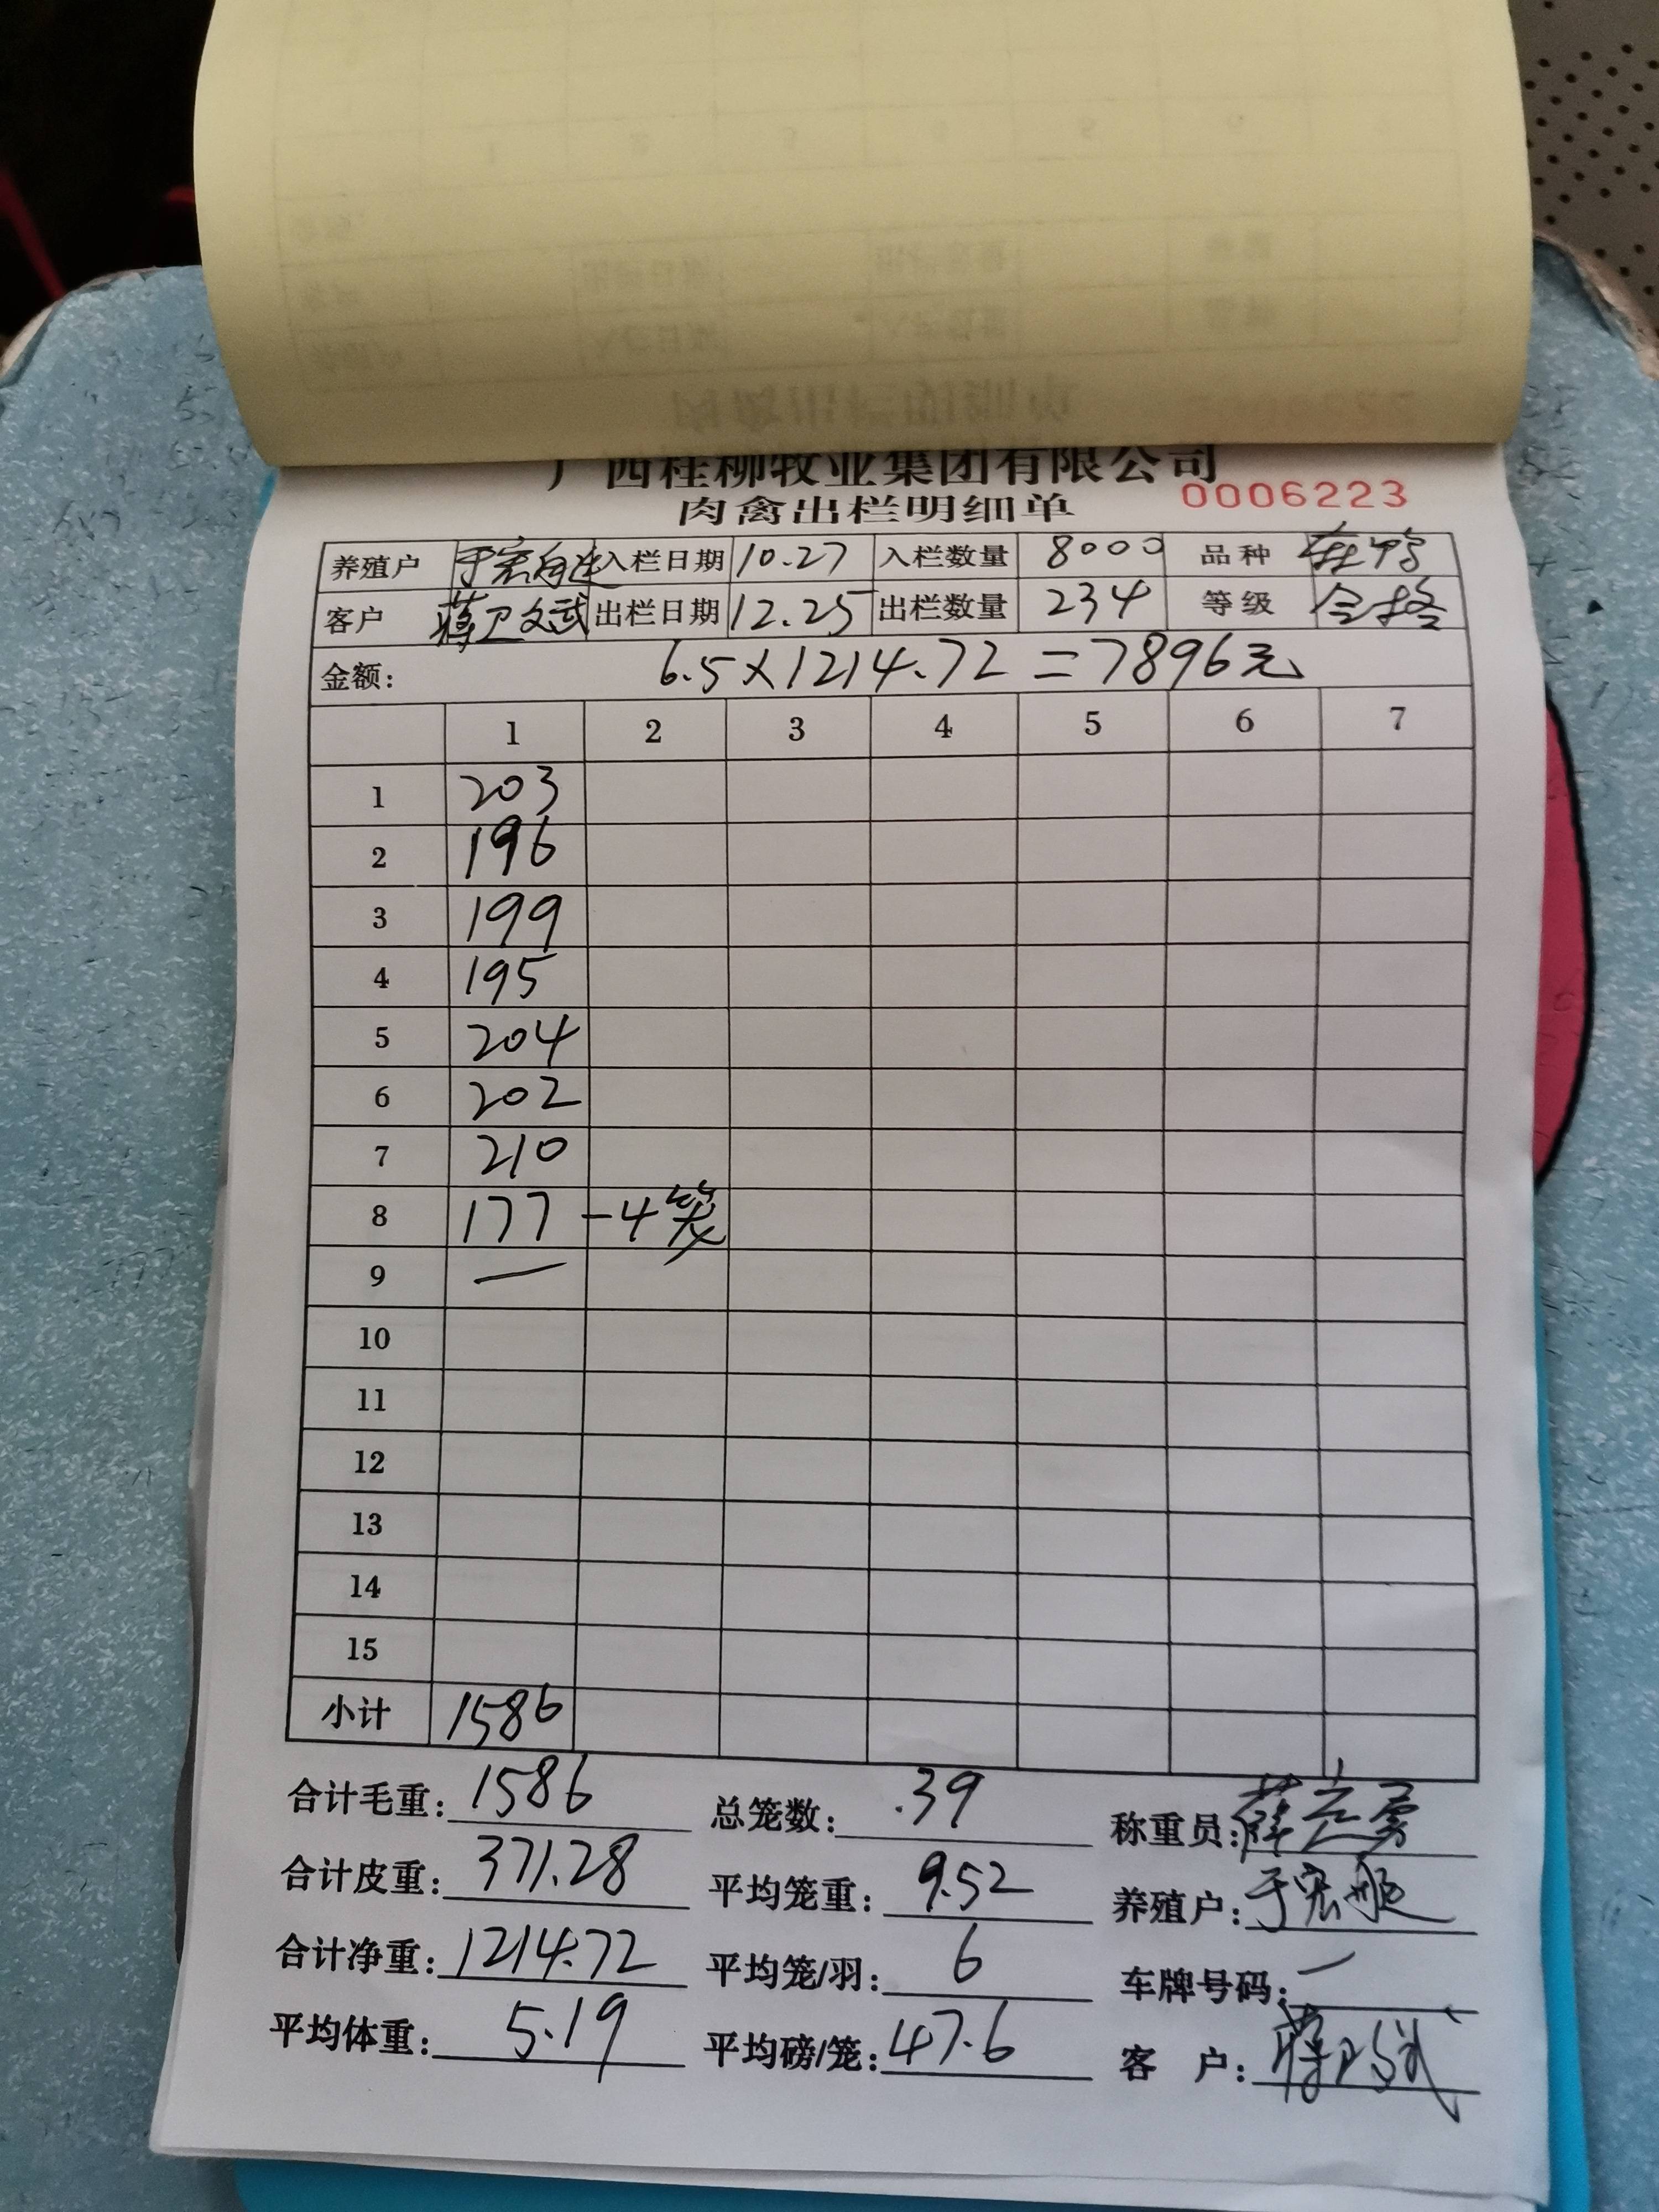 广西桂柳牧业集团有限公司
肉禽出栏明细单 0006223
养殖户 于宏 入栏日期 10.27 入栏数量 8000 品种
客户 蒋卫文武 出栏日期 12.25 出栏数量 234 等级 合格
金额: 6.5×1214.72=7896元
1 2 3 4 5 6 7
1 203
2 196
3 199
4 195
5 204
6 202
7 210
8 177 -4笼
9 —
10
11
12
13
14
15
小计 1586
合计毛重: 1586 总笼数: .39 称重员: 薛
合计皮重: 371.28 平均笼重: 9.52 养殖户: 于宏
合计净重: 1214.72 平均笼/羽: 6 车牌号码: 一
平均体重: 5.19 平均磅/笼: 47.6 客户: 蒋